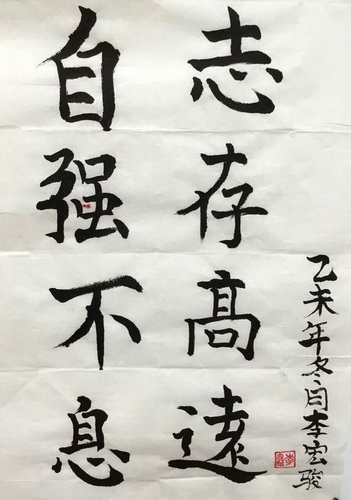 自强不息
志存高遠
乙未年冬月李宏骏